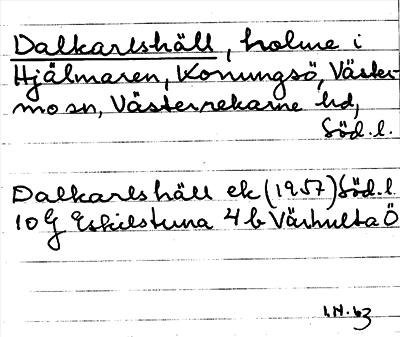 Dalkarlshäll, holme i
Hjälmaren, Konungsö, Väster-
mo sn, Västerrekarne hd,
Söd.l.
Dalkarlshäll ek (1957) Söd.l.
10G Eskilstuna 4b Värhulta Ö
I.N. 63